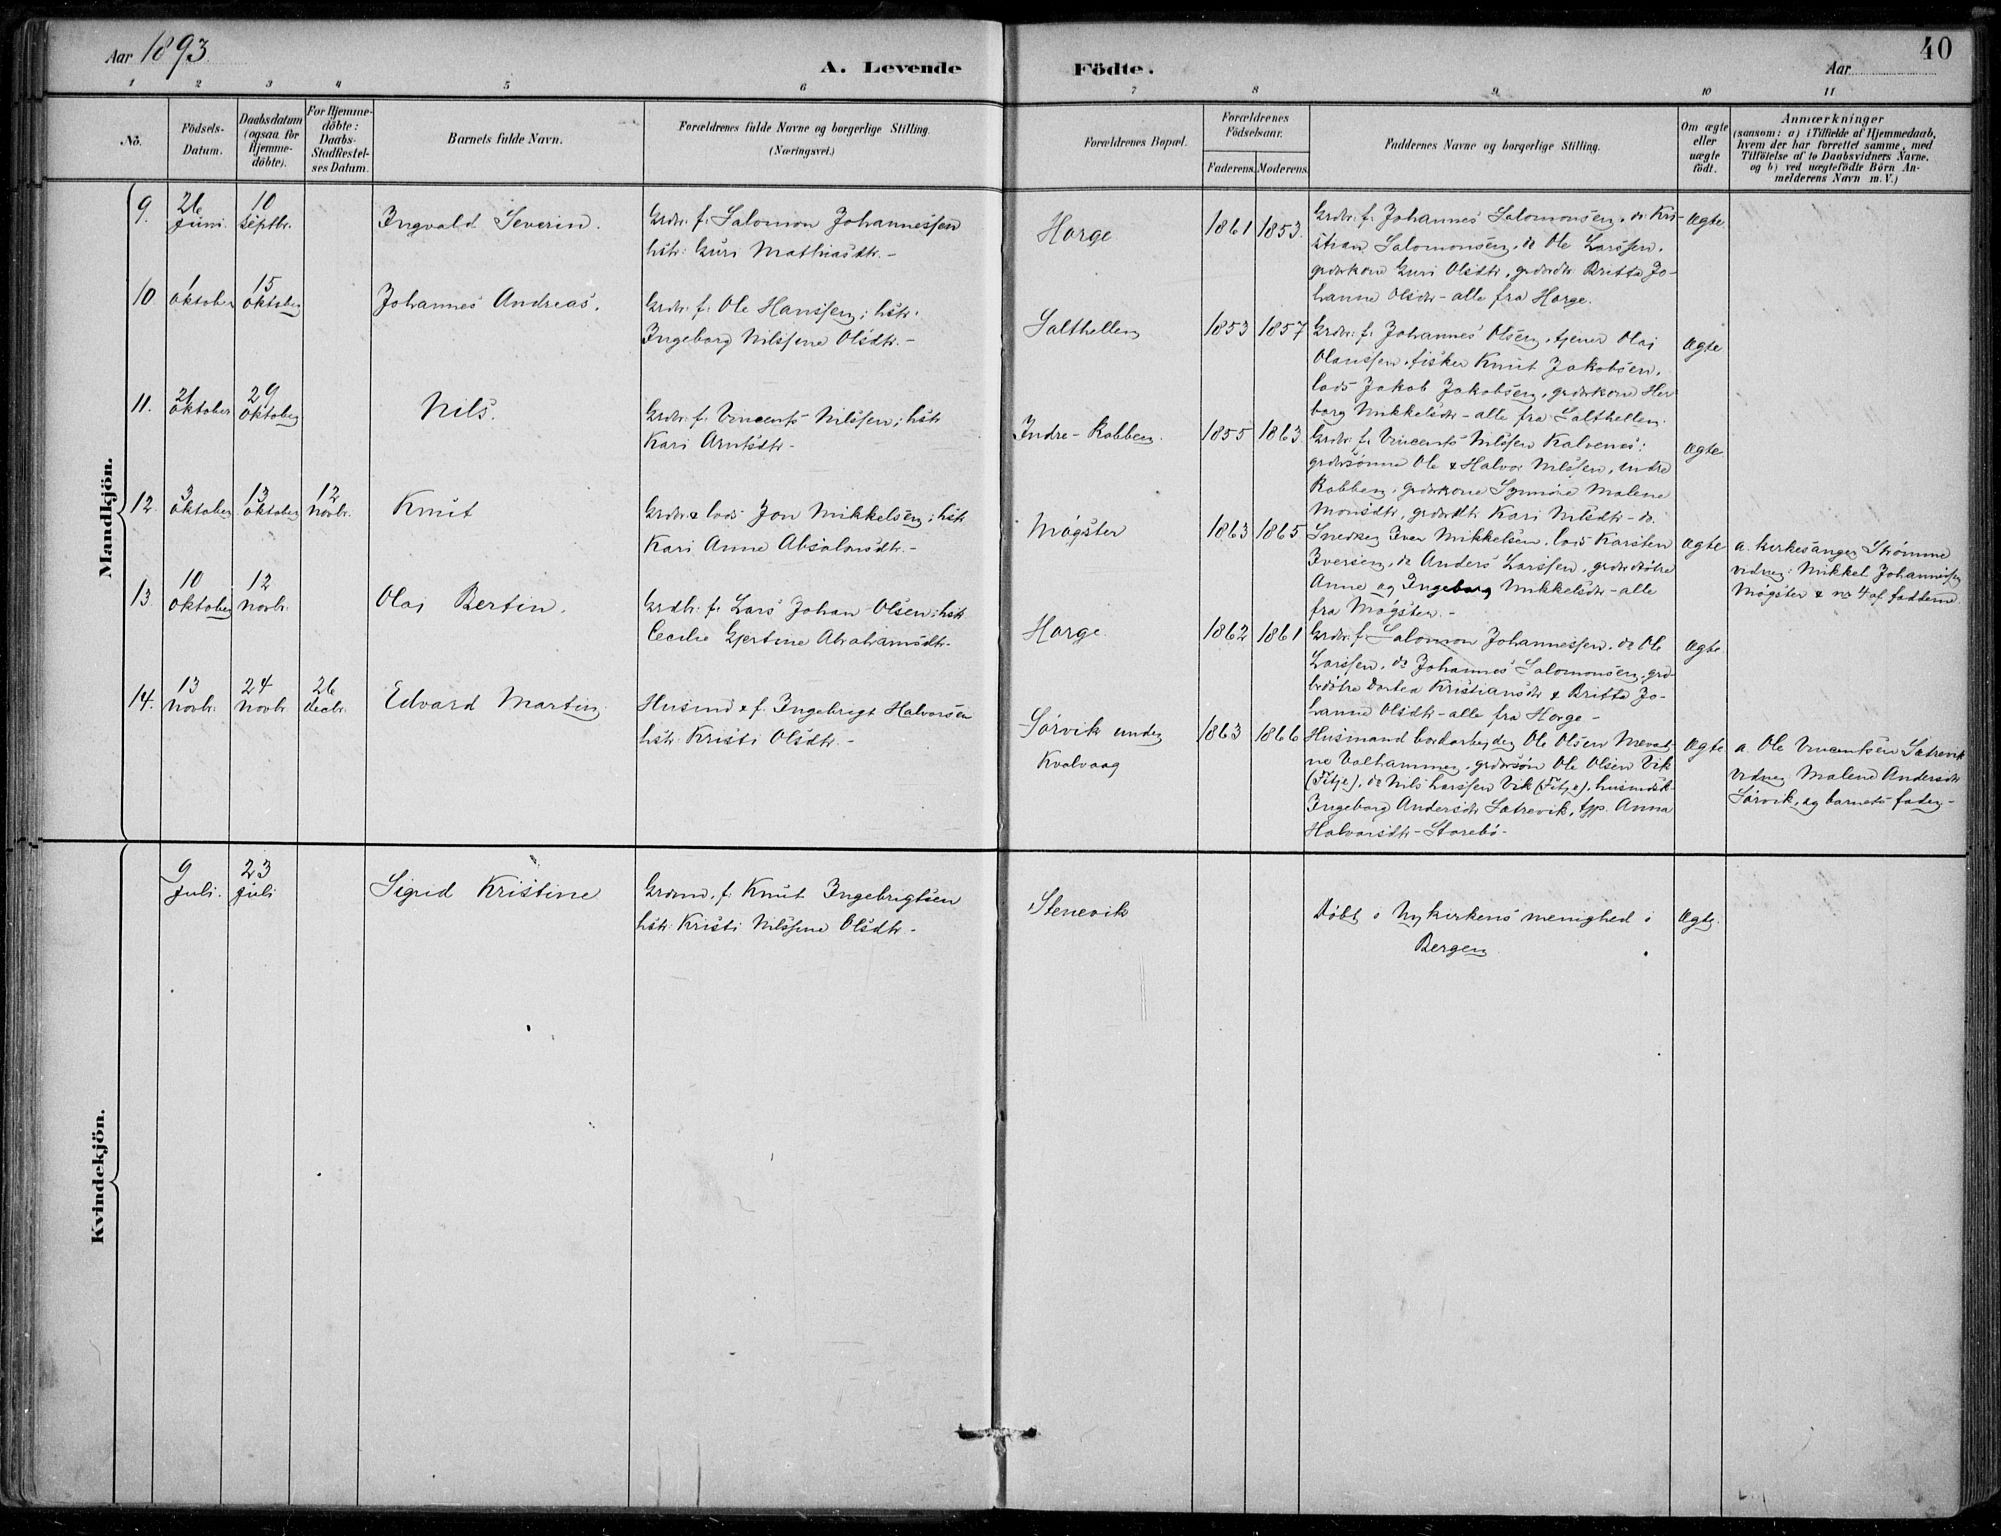 Aar 1893
A. Levende
Födte.
Aar
40
1 2 3 4 5 6 7 8 9 10 11
No.
Födsels-
Datum.
Daabsdatum
(ogsaa for
Hjemme-
döbte).
For Hjemme-
döbte:
Daabs-
Stadfæstel-
ses Datum.
Barnets fulde Navn.
Forældrenes fulde Navne og borgerlige Stilling.
(Næringsvei.)
Forældrenes Bopæl.
Forældrenes
Födselsaar.
Faderens.
Moderens.
Faddernes Navne og borgerlige Stilling.
Om ægte
eller
uægte
födt.
Anmærkninger
(saasom: a) i Tilfælde af Hjemmedaab,
hvem der har forrettet samme, med
Tilföielse af to Daabsvidners Navne.
og b) ved uægtefödte Börn An-
melderens Navn m. V.)
Mandkjön.
9.
26
Juni.
10
Septbr.
Ingvald Severin.
Grdbr. f. Salomon Johannessen
hstr: Guri Mathiasdtr. -
Horge
1861
1853.
Grdbr. f. Johannes Salomonsen, do Kri-
stian Salomonsen, do Ole Larssen.
grdbrkone Guri Olsdtr, grdbrdtr Britta Jo-
hanne Olsdtr - alle fra Horge.
Ægte
10.
1
oktober
15
oktober
Johannes Andreas.
Grdbr. f. Ole Hanssen; hstr.
Ingeborg Nilssine Olsdtr. -
Salthellen
1853
1857
Grdbr. f. Johannes Olsen, tjener Olai
Olaussen, fisker Knut Jakobsen.
lods Jakob Jakobsen, grdbrkone Her
borg Mikkelsdtr - alle fra Salthellen.
Ægte
11.
21
oktober
29
oktober
Nils.
Grdbr. f. Vincents Nilssen; hstr
Kari Arntsdtr -
Indre-Rabben.
1855
1863.
Grdbr. f. Vincents Nilssen Kalvenes:
grdbrsönne Ole & Halvor Nilssen, indre
Rabben, grdbrkone Synnöve Malene
Monsdtr, grdbrdtr Kari Nilsdtr - do.
Ægte
12.
3
oktober
13
oktober
12
novbr.
Knut
Grdbr & lods Jon Mikkelsen; hstr
Kari Anne Absalonsdtr. -
Møgster
1863
1865.
Snedker Iver Mikkelsen, lods Karsten
Iversen, do Anders Larssen, grdbrdøtre
Anne og Ingeborg Mikkelsdtr - alle
fra Møgster. -
Ægte
a. kirkesanger Strømme
vidner: Mikkel Johannessen
Møgster & no 4 af fadderne.
13.
10
oktober
12
novbr.
Olai Bertin.
Grdbr. f. Lars Johan Olsen; hstr
Cecilie Gjertine Abrahamsdtr. -
Horge
1862
1861
Grdbr. f. Salomon Johannessen, do Ole
Larssen, do Johannes Salomonsen, grd-
brdøtre Dortea Kristiansdtr & Britta Jo-
hanne Olsdtr - alle fra Horge -
Ægte.
14.
13
novbr.
24
novbr
26
decbr.
Edvard Martin.
Husmd & f. Ingebrigt Halvorsen
hstr: Kristi Olsdtr. -
Sørvik under
Kvalvaag
1863
1866
Husmand Ole Olsen
Valhammer, grdbrsøn Ole Olsen Vik
(Fitje), do Nils Larssen Vik (Fitje), husmdsk.
Ingeborg Andersdtr Satrevik, tjp. Anna
Halvorsdtr - Storebø -
Ægte
a. Ole Vincentsen Satrevik
vidner Malene Andersdtr
Sørvik, og barnets fader -
Kvindekjön.
9
Juli.
23
juli
Sigrid Kristine
Grdmd. f. Knut Ingebrigtsen
hstr: Kristi Nilssine Olsdtr. -
Stenevik
Døbt i Nykirkens menighed i
Bergen.
Ægte.